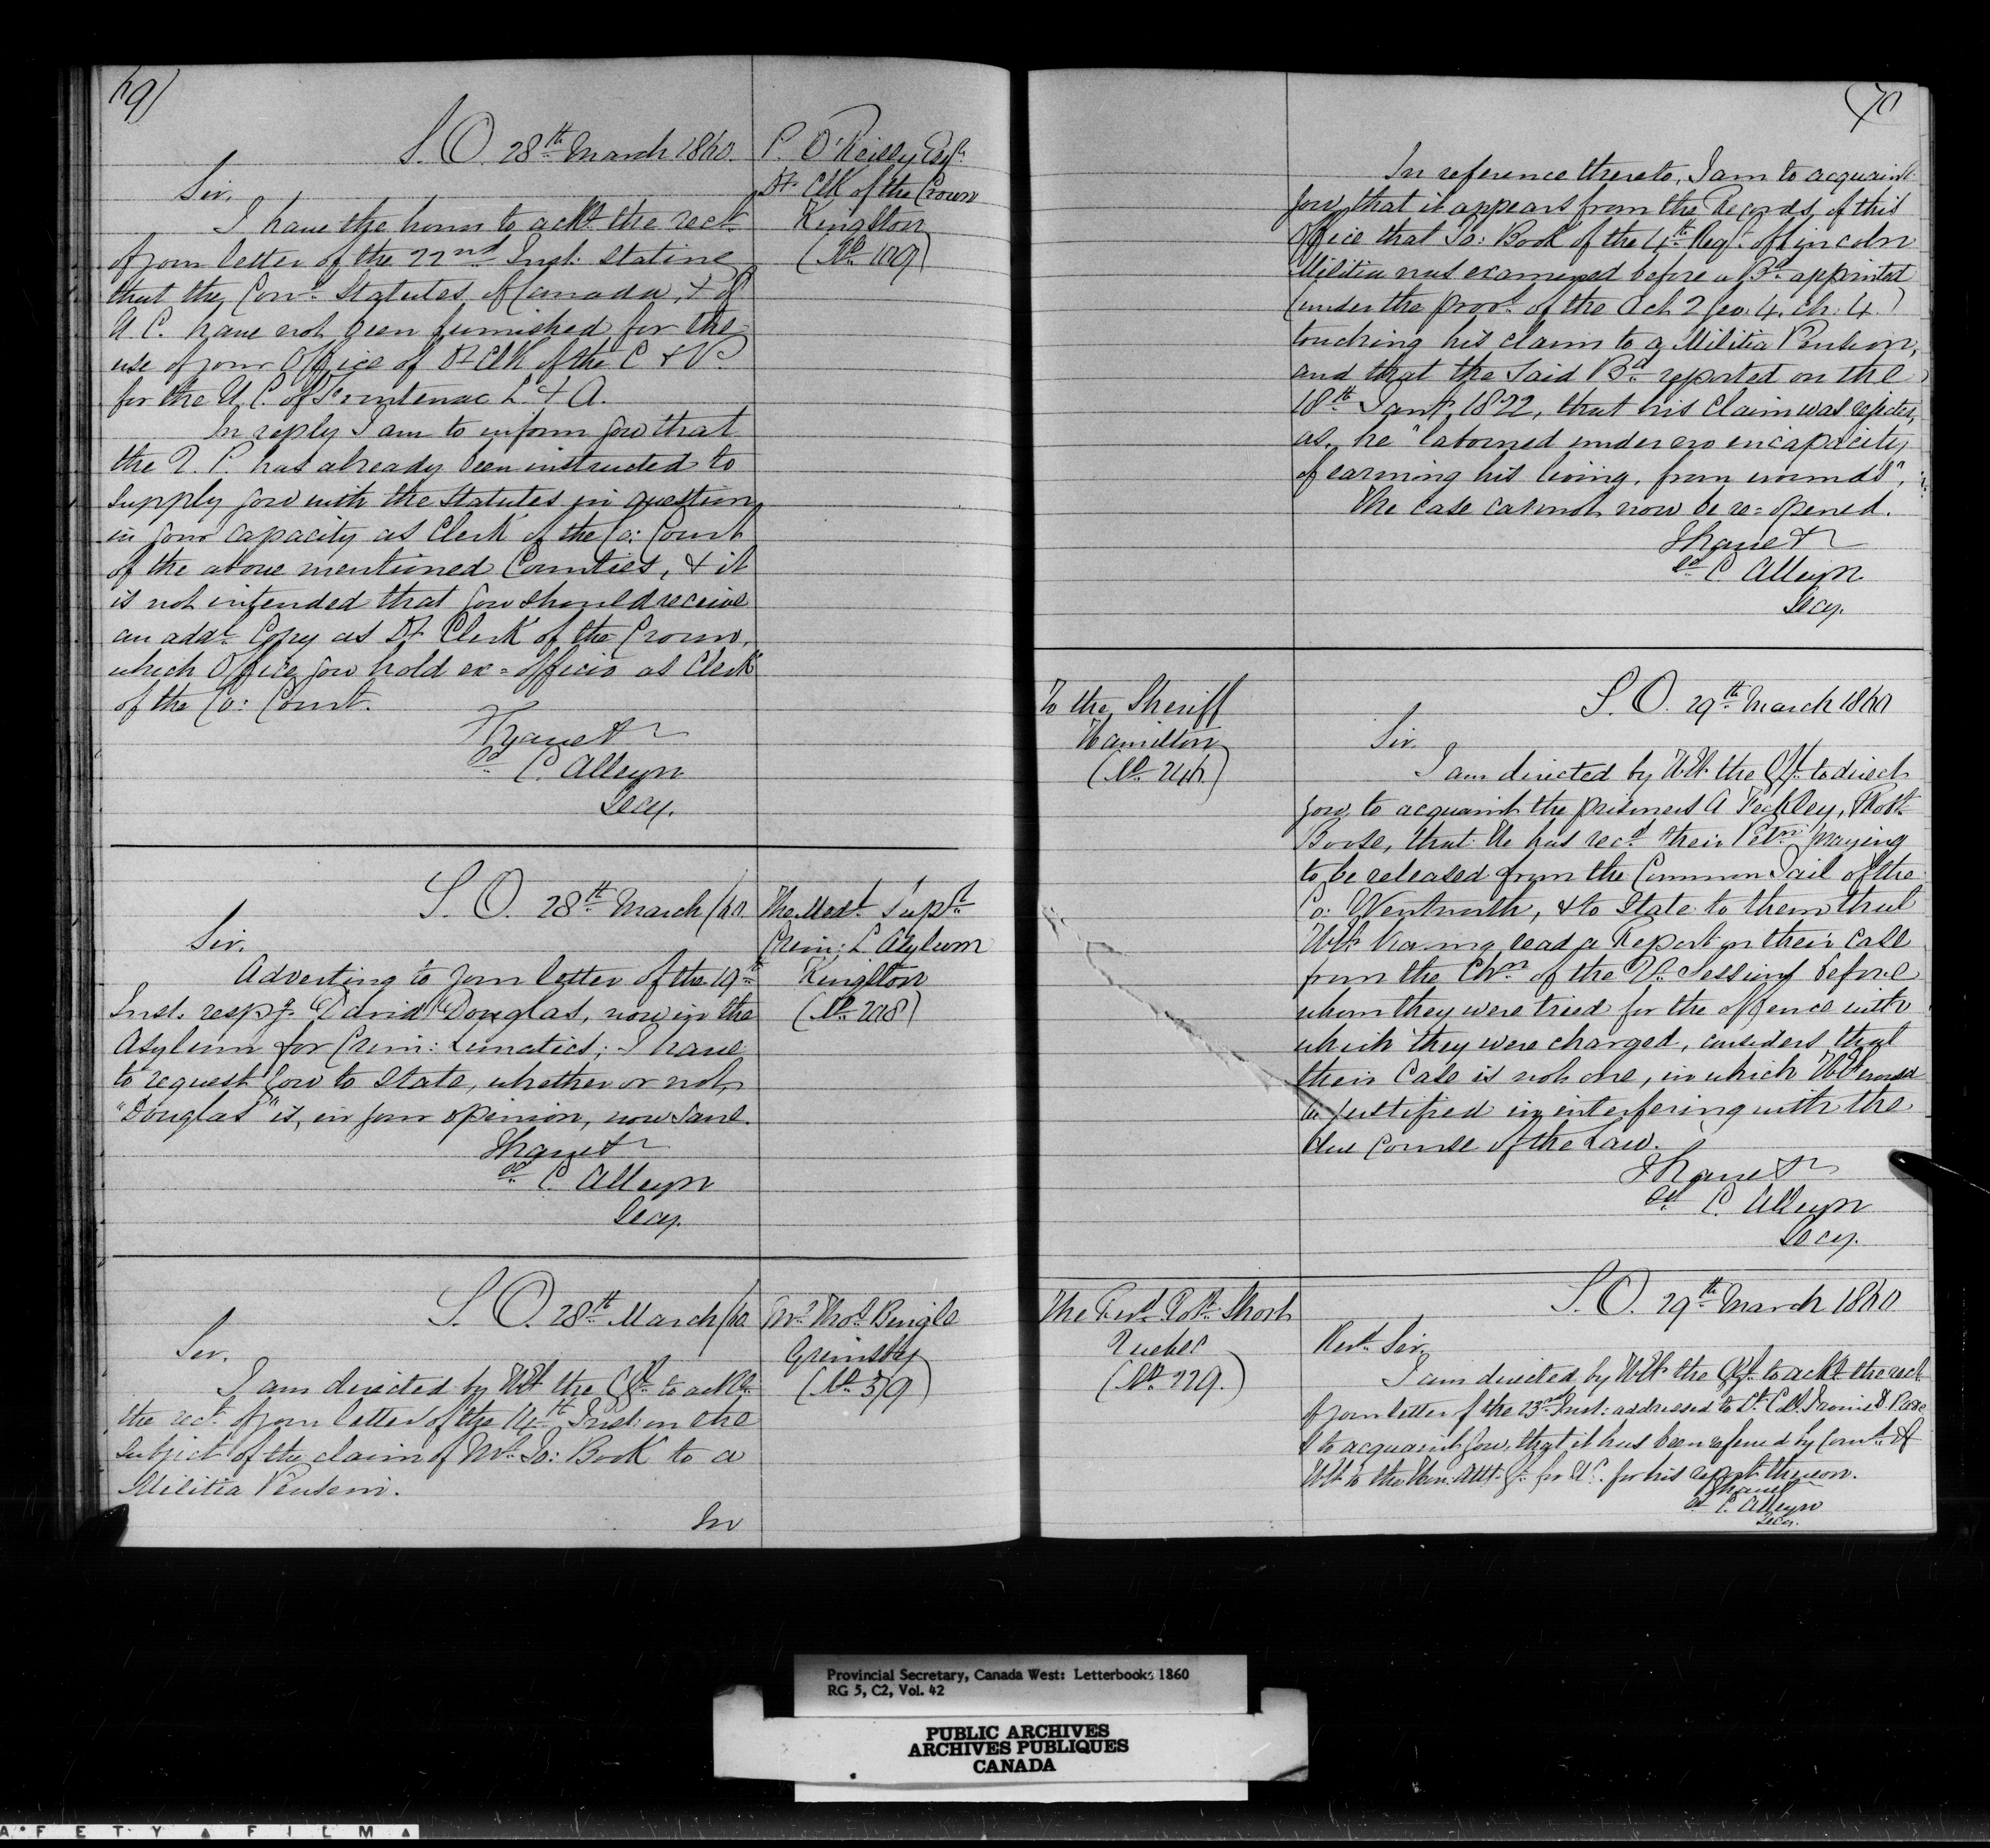 69)
S. O. 28th March 1860.
P. O'Reilly Esqr
Dy Clk of the Crown
Kingston
(No 109)
Sir,
I have the honor to ackt the rect
of your letter of the 22nd Inst: stating
that the Conn. Statutes of Canada, & of
U C. have not been furnished for the
use of your Office of Dy Clk of the C & P.
for the U. C. of Frontenac L. & A.
In reply I am to inform you that
the Q. P. has already been instructed to
supply you with the Statutes in question
in your capacity as Clerk of the Co: Court
of the above mentioned Counties, & it
is not intended that you should receive
an addl Copy as Dy Clerk of the Crown,
which Office you hold ex=officio as Clerk
of the Co: Court.
I have &
sd C. Alleyn
Secy.
S. O. 28th March /60.
The Medl Supt
Crim: L. Asylum
Kingston
(No 208)
Sir,
Adverting to your letter of the 19th
Inst. respg. David Douglas, now in the
Asylum for Crim: Lunatics; I have
to request you to state, whether or not,
"Douglas" is, in your opinion, now sane.
I have &
sd C. Alleyn
Secy.
S. O. 28th March /60
Mr Thos Bingle
Grimsby
(No 319)
Sir,
I am directed by HE the GG to ackt
the rect of your letter of the 14th Inst: on the
subject of the claim of Mr Jo: Book to a
Militia Pension.
In
70
In reference thereto, I am to acquaint
you, that it appears from the Records of this
Office that Jo: Book of the 4th Regt of Lincoln
Militia was examined before a Bd appointed
(under the provs of the Act 2 Geo: 4. Ch: 4.)
touching his claim to a Militia Pension,
and that the said Bd reported on the
18th Jany 1822, that his claim was rejected,
as, he "laboured under no incapacity
of earning his living, from wounds",
The case cannot now be re=opened.
I have &
sd C Alleyn
Secy.
To the Sheriff
Hamilton
(No 246)
S. O. 29th March 1860
Sir,
I am directed by HE. the GG. to direct
you, to acquaint the prisoners A Feckley, Robt
Boose, that He has recd their Petn praying
to be released from the Common Jail of the
Co: Wentworth, & to State to them that
HE. having read a Report on their case
from the Chn of the Qr Sessions before
whom they were tried for the offence with
which they were charged, considers that
their Case is not one, in which HE would
be justified in interfering with the
due course of the Law.
I have &
sd C. Alleyn
Secy.
The Revd Robt Short
Quebec
(No 229.)
S. O. 29th March 1860
Revd Sir,
I am directed by HE. the GG. to ackt the rect
of your letter of the 23rd Inst: addressed to Lt Col.
& to acquaint you, that it has been referred by Comd of
HE to the Hon: Atty. Gl. for U C. for his report thereon.
I have &
sd C. Alleyn
Secy.
Provincial Secretary, Canada West: Letterbooks 1860
RG 5, C2, Vol. 42
PUBLIC ARCHIVES
ARCHIVES PUBLIQUES
CANADA
A F E T Y ▲ F I L M ▲